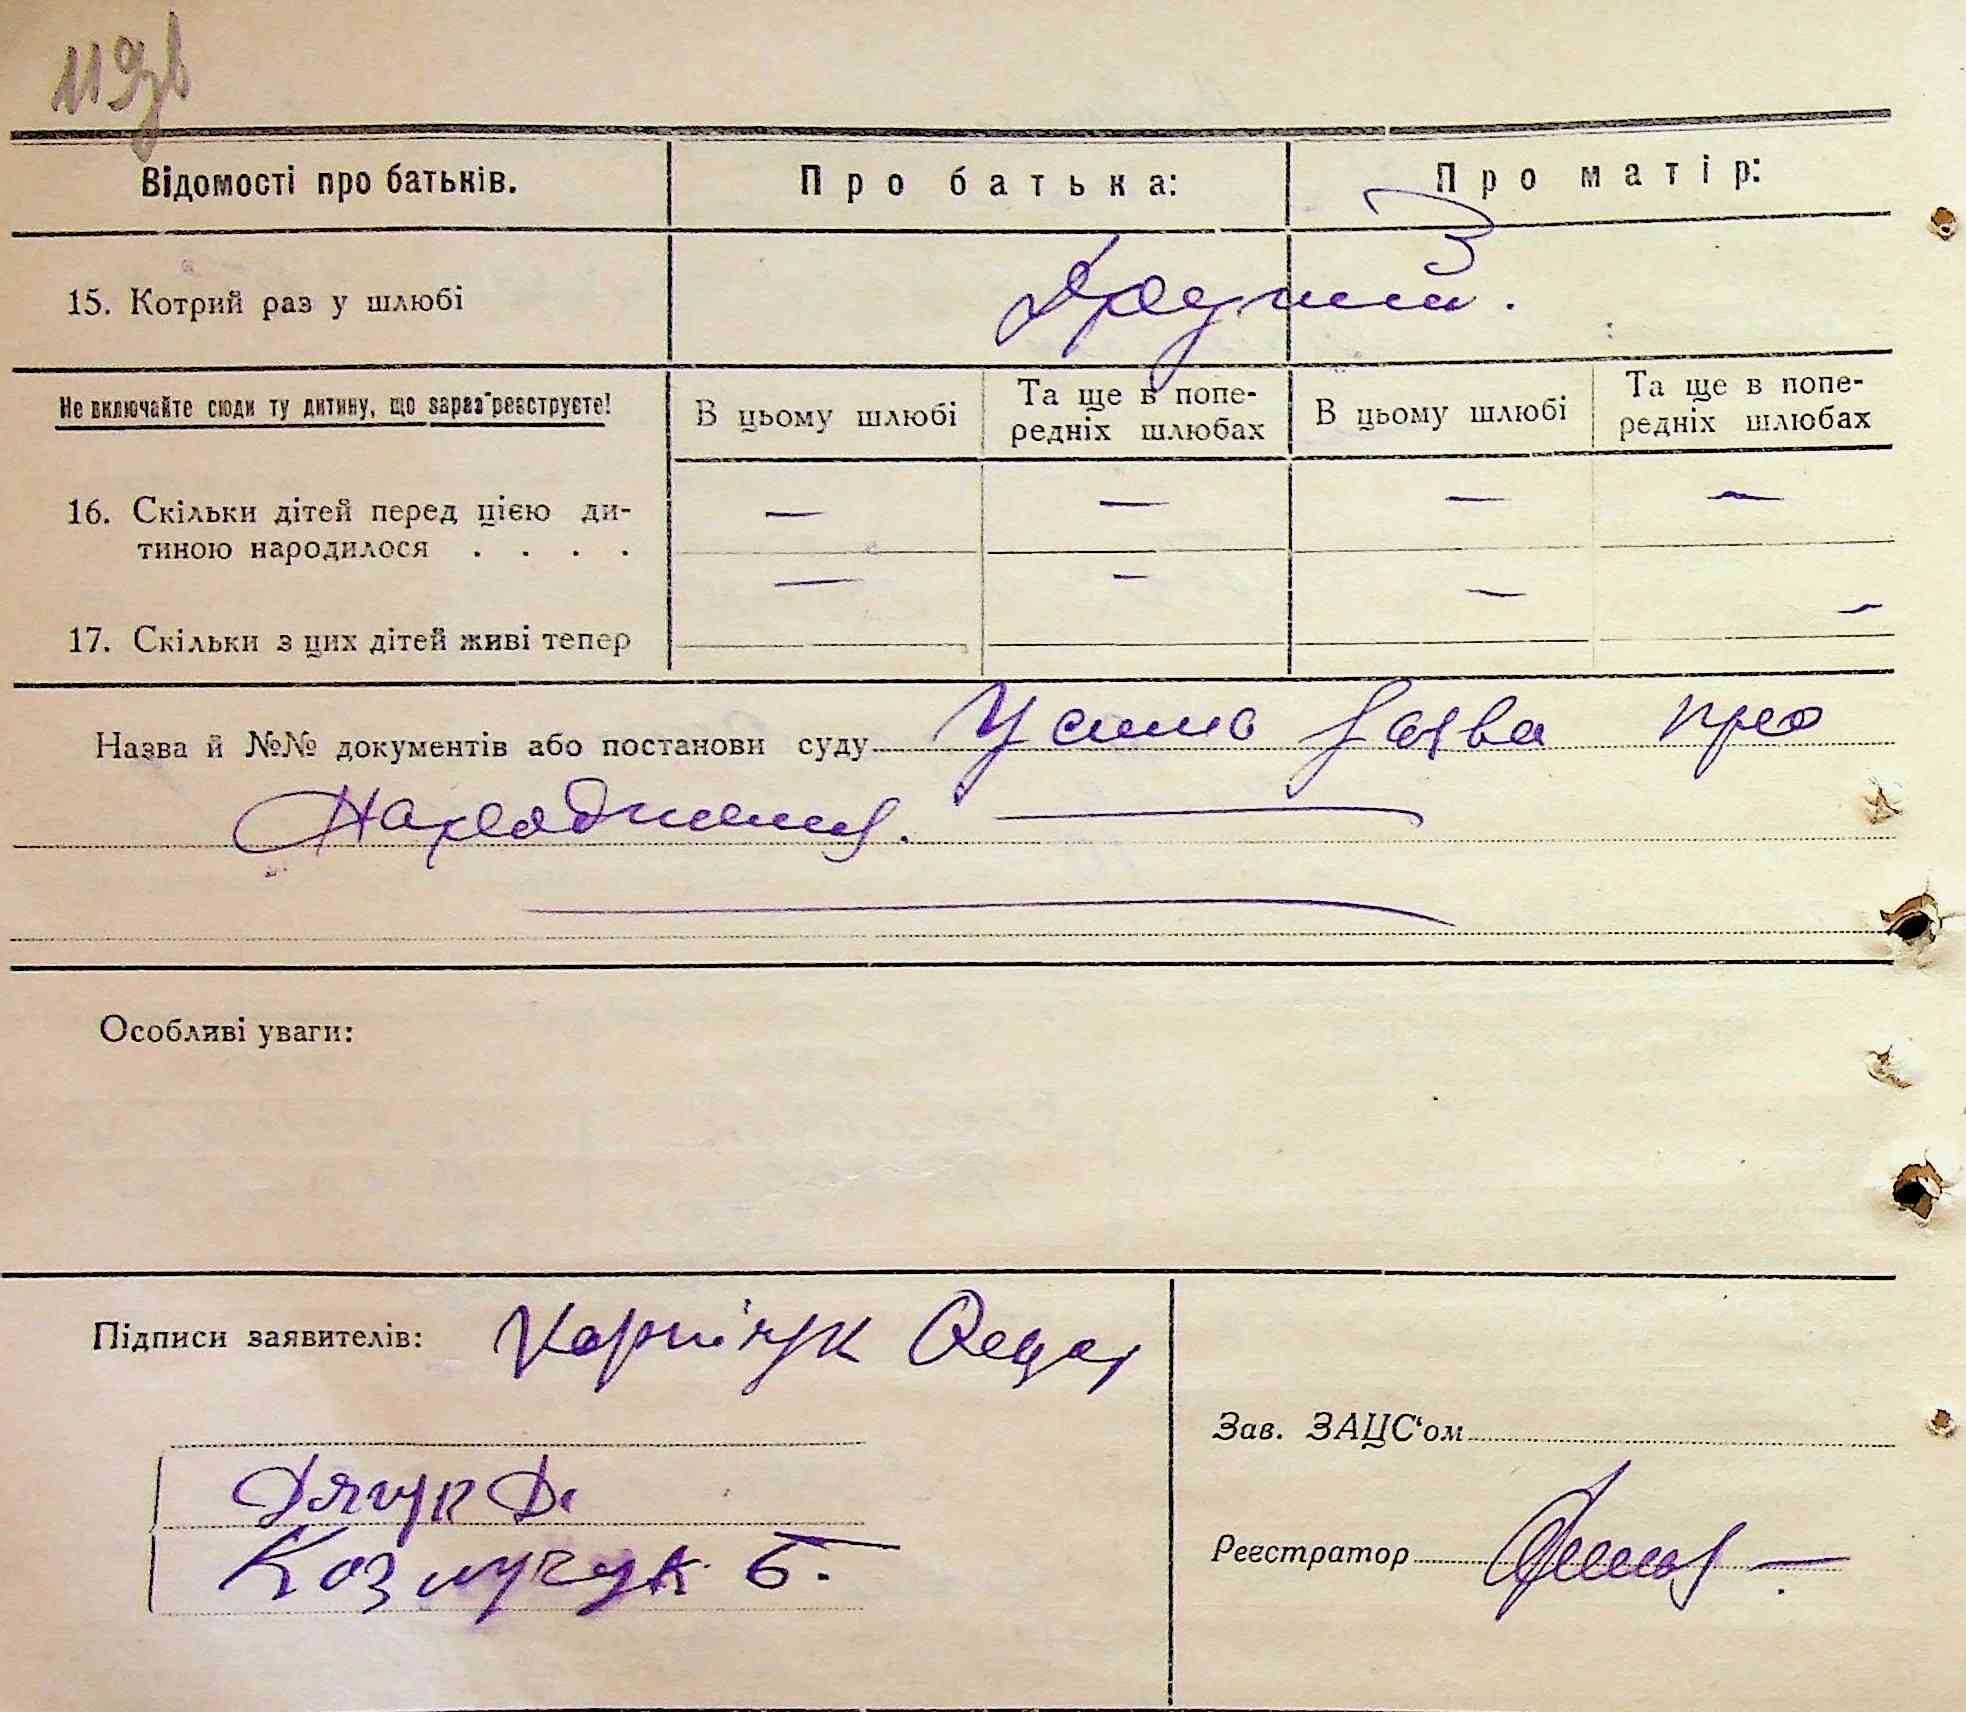 119зв
Відомості про батьків. Про батька: Про матір:
15. Котрий раз у шлюбі Другий.
Не включайте сюди ту дитину, що зараз реєструєте!
В цьому шлюбі Та ще в попе-редніх шлюбах В цьому шлюбі Та ще в попе-редніх шлюбах
16. Скільки дітей перед цією ди- — — — —
тиною народилося . . . .
17. Скільки з цих дітей живі тепер — — — —
Назва й №№ документів або постанови суду Усина заява про
народження.
Особливі уваги:
Підписи заявителів: Корнійчук
Зав. ЗАЦС‘ом
Дячук Д.
Реєстратор
Козлучук Б.